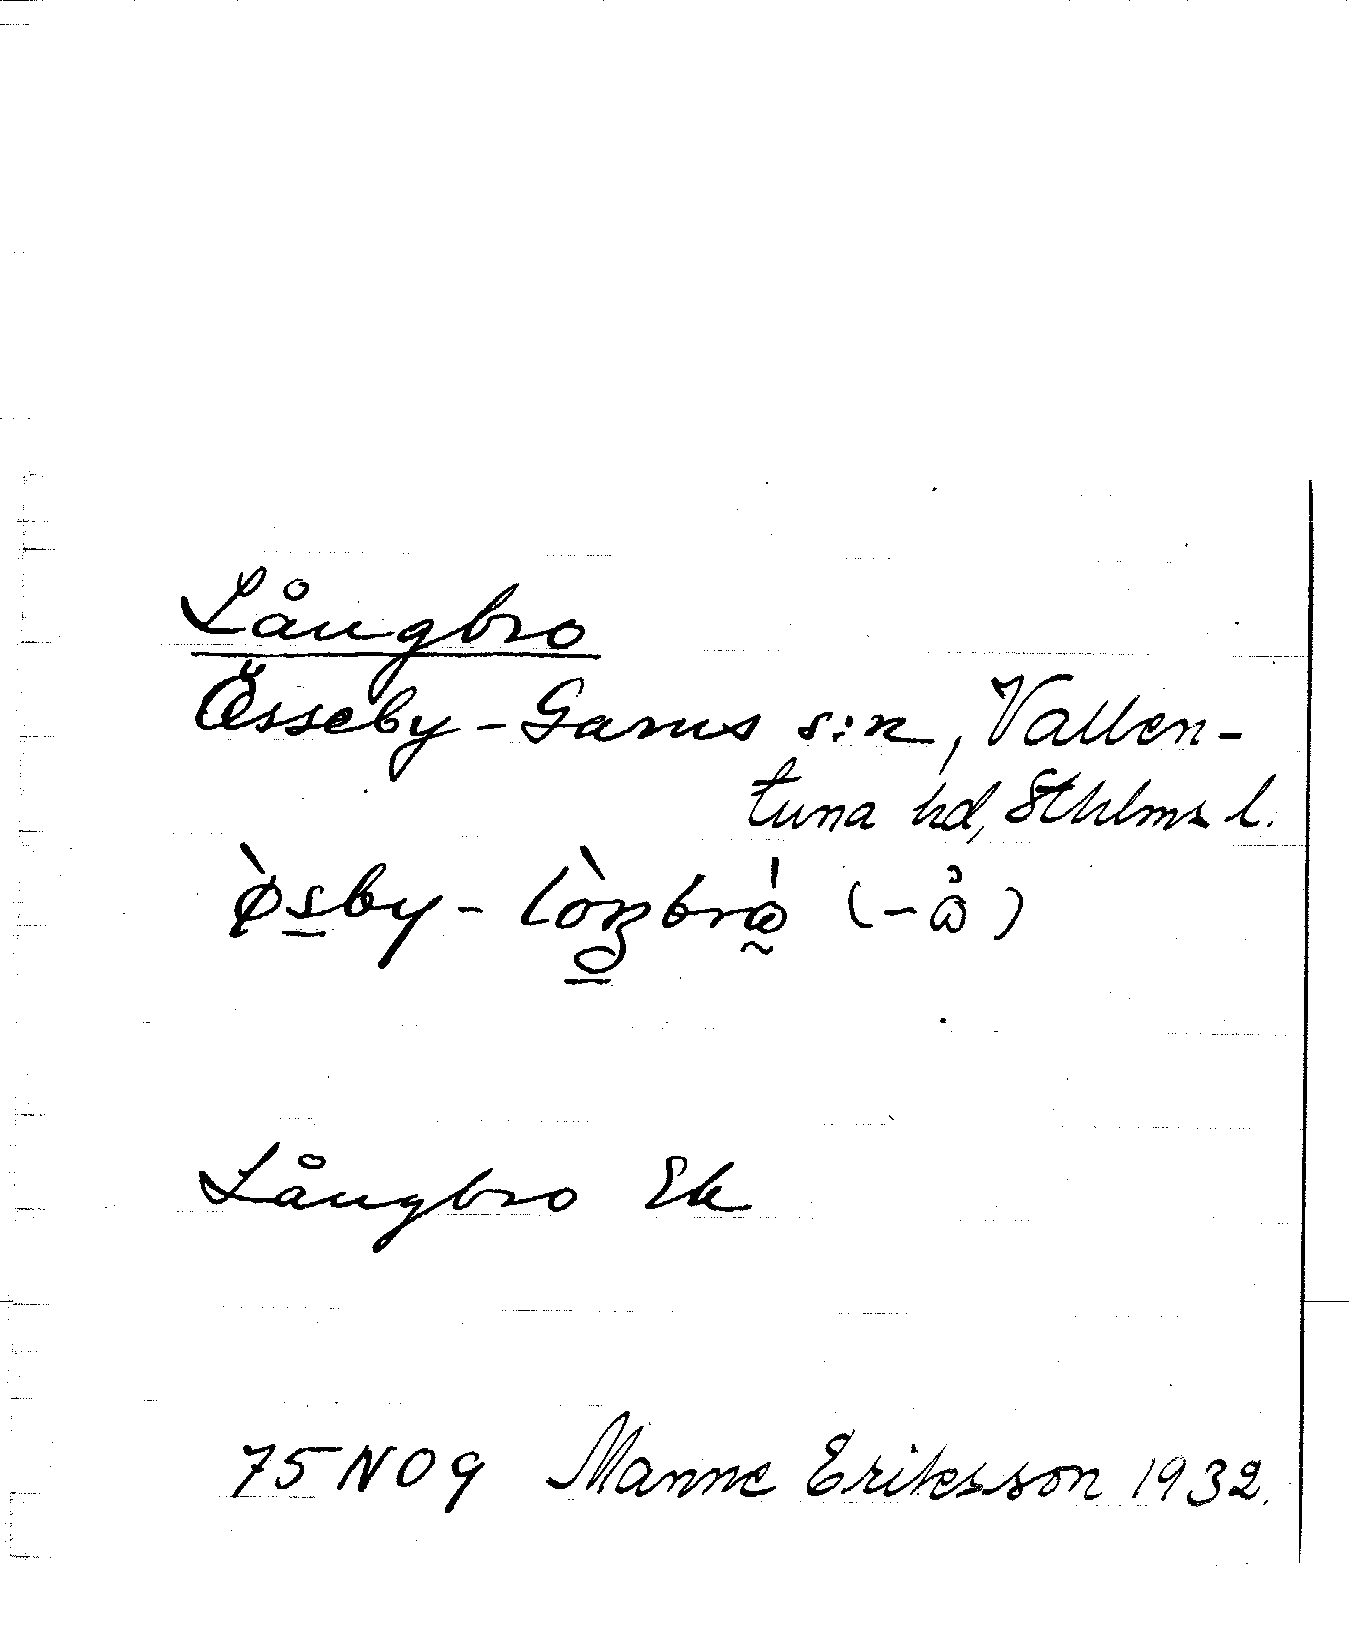 Långbro
Össeby-Garns s:n, Vallen-
tuna hd, Sthlms l.
Långbro Ek
75 NO 9 Manne Eriksson 1932.